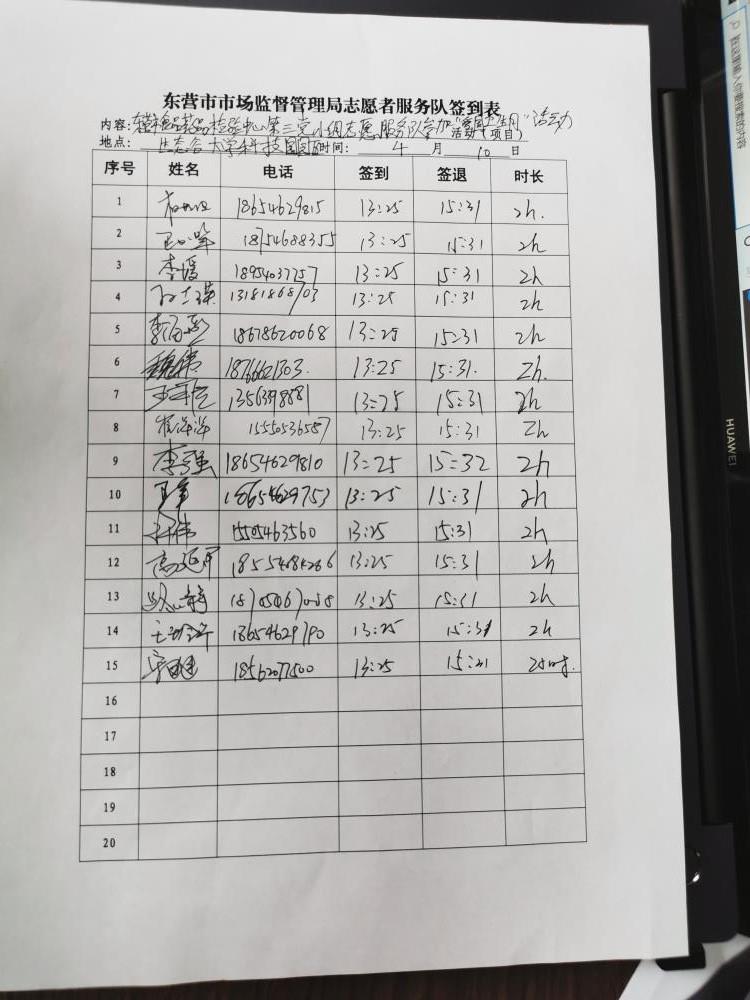 东营市市场监督管理局志愿者服务队签到表
内容: 检验中心第三党小组志愿服务队参加 活动
活动(项目)
地点: 生态谷大学科技园 时间: 4 月 10 日
序号 姓名 电话 签到 签退 时长
1 18654629815 13:25 15:31 2h.
2 18754688355 13:25 15:31 2h
3 李媛 18954037757 13:25 15:31 2h
4 13181868703 13:25 15:31 2h
5 18678620068 13:25 15:31 2h
6 魏伟 18766621303. 13:25 15:31. 2h.
7 13563998881 13:25 15:31 2h
8 崔洋洋 15550536587 13:25 15:31 2h
9 李强 18654629810 13:25 15:32 2h
10 18654629753 13:25 15:31 2h
11 1505463560 13:25 15:31 2h
12 高延军 13:25 15:31 2h
13 13:25 15:31 2h
14 18654629790 13:25 15:31 2h
15 18562077500 13:25 15:31 2小时.
16
17
18
19
20
HUAWEI